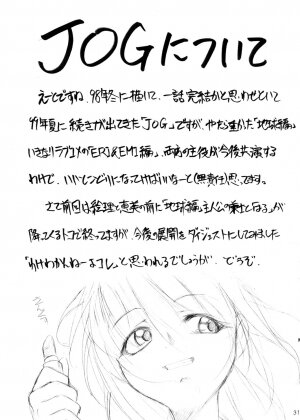 JOGについて
えーとですね、98年冬に描いて、一話完結かと思わせといて
99年夏に続きが出てきた「JOG」ですが、やたら重かった「地球編」
いきなりラブコメのERI&EMI編」、両者の主役が今後共演する
わけで、いいじゃないになってけばいいなーと(無責任)思ってます。
さて前回は絵理と恵美の前に「地球編」主人公の乗った
降ってくるトコで終ってますが、今後の展開をダイジェストにしてみました
「わけわかんねーよコレ」と思われるでしょうが、どうぞ。
3